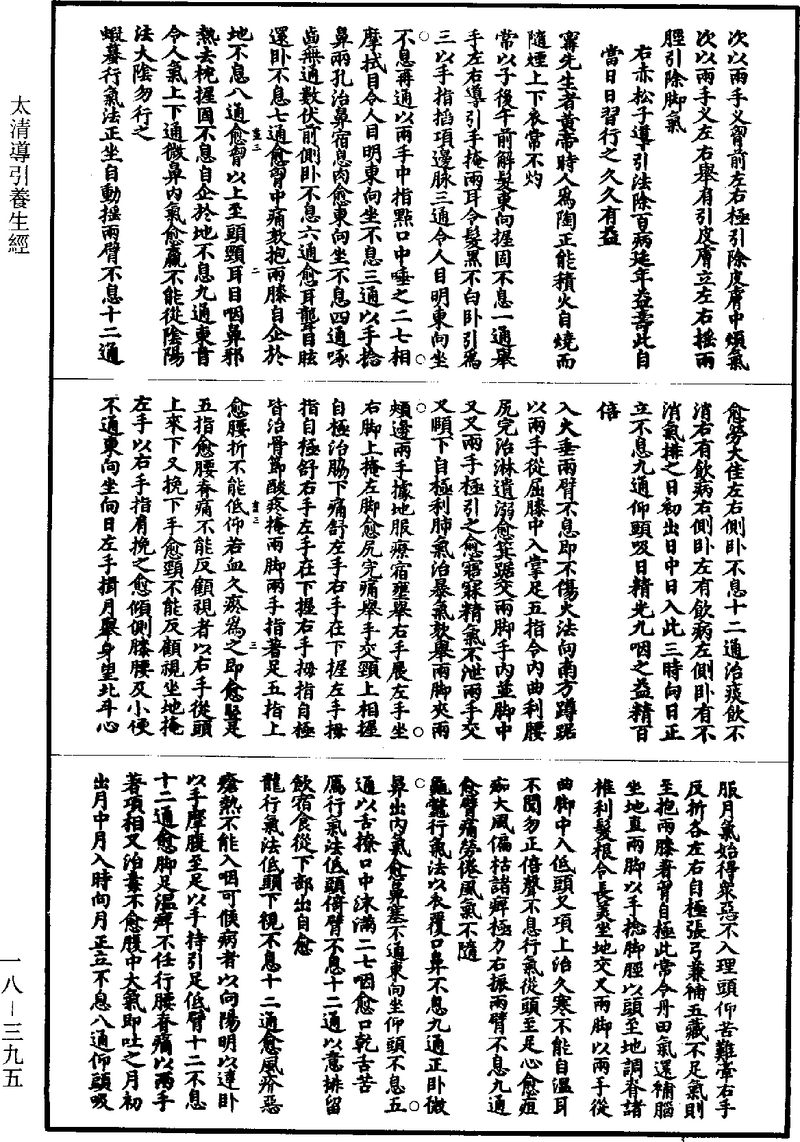 太清導引養生經
次以兩手叉胷前左右極引除皮膚中煩氣
次以兩手叉左右舉肩引皮膚立左右搖兩
脛引除脚氣
右赤松子導引法除百病延年益壽此自
當日日習行之久久有益
甯先生者黃帝時人爲陶正能積火自燒而
隨煙上下衣常不灼
常以子後午前解髮東向握固不息一通舉
手左右導引手掩兩耳令髮黑不白卧引爲
三以手指掐項邊脉三通令人目明東向坐
不息再通以兩手中指點口中唾之二七相
摩拭目令人目明東向坐不息三通以手捻
鼻兩孔治鼻宿息肉愈東向坐不息四通啄
齒無通數伏前側卧不息六通愈耳聾目眩
還卧不息七通愈胷中痛欬抱兩膝自企於
地不息八通愈胷以上至頭頸耳目咽鼻邪
熱去挽握固不息自企於地不息九通東首
令人氣上下通微鼻內氣愈羸不能從陰陽
法大陰勿行之
蝦蟇行氣法正坐自動搖兩臂不息十二通
愈勞大佳左右側卧不息十二通治痰飲不
消右有飲病右側卧左有飲病左側卧有不
消氣排之日初出日中日入此三時向日正
立不息九通仰頭吸日精光九咽之益精百
倍
入火垂兩臂不息即不傷火法向南方蹲踞
以兩手從屈膝中入掌足五指令內曲利腰
尻完治淋遺溺愈箕踞交兩脚手內並脚中
又叉兩手極引之愈寤寐精氣不泄兩手交
叉頤下自極利肺氣治暴氣欬舉兩脚夾兩
頰邊兩手據地服療宿壅舉右手展左手坐
右脚上掩左脚愈尻完痛舉手交頸上相握
自極治脇下痛舒左手右手在下握左手拇
指自極舒右手左手在下握右手拇指自極
皆治骨節酸疼掩兩脚兩手指著足五指上
愈腰折不能低仰若血久瘀爲之即愈竪足
五指愈腰脊痛不能反顧視者以右手從頭
上來下又挽下手愈頸不能反顧視坐地掩
左手以右手指肩挽之愈傾側膝腰及小便
不通東向坐向日左手揖月舉身望北斗心
服月氣始得衆惡不入理頭仰苦難牽右手
反折各左右自極張弓兼補五藏不足氣則
至抱兩膝著胷自極此常令丹田氣還補腦
坐地直兩脚以手捻脚脛以頭至地調脊諸
椎利髮根令長美坐地交叉兩脚以兩手從
曲脚中入低頭叉項上治久寒不能自温耳
不聞勿正倍聲不息行氣從頭至足心愈疽
痂大風偏枯諸痺極力右振兩臂不息九通
愈臂痛勞倦風氣不隨
龜鼈行氣法以衣覆口鼻不息九通正卧微
鼻出內氣愈鼻塞不通東向坐仰頭不息五
通以舌撩口中沫滿二七咽愈口乾舌苦
鴈行氣法低頭倚臂不息十二通以意排留
飲宿食從下部出自愈
龍行氣法低頭下視不息十二通愈風疥惡
瘡熱不能入咽可候病者以向陽明以達卧
以手摩腹至足以手持引足低臂十二不息
十二通愈脚足温痺不任行腰脊痛以兩手
著項相叉治毒不愈腹中大氣即吐之月初
出月中月入時向月正立不息八通仰頭吸
一八—三九五